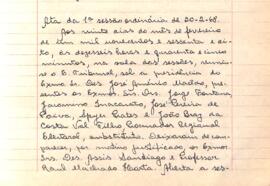 Ata da 1ª sessão ordinária de 20-2-68.
Aos vinte dias do mês de fevereiro
de um mil novecentos e sessenta e oi-
to, às dezesseis horas e quarenta e cinco
minutos, na sala das sessões, reuniu-
se o Tribunal, sob a presidência do
Exmo Sr. Des José Américo Macêdo, pre-
sentes os Exmos. Srs. Drs. Jorge Fontana,
Jacomino Inacarato, José Pereira de
Paiva, e João Braz da
Costa Val Filho, Procurador Regional
Eleitoral, substituto. Deixaram de com-
parecer, por motivo justificado, os Exmos.
Srs. Des. Assis Santiago e Professor
Raul Machado Horta. Aberta a ses-